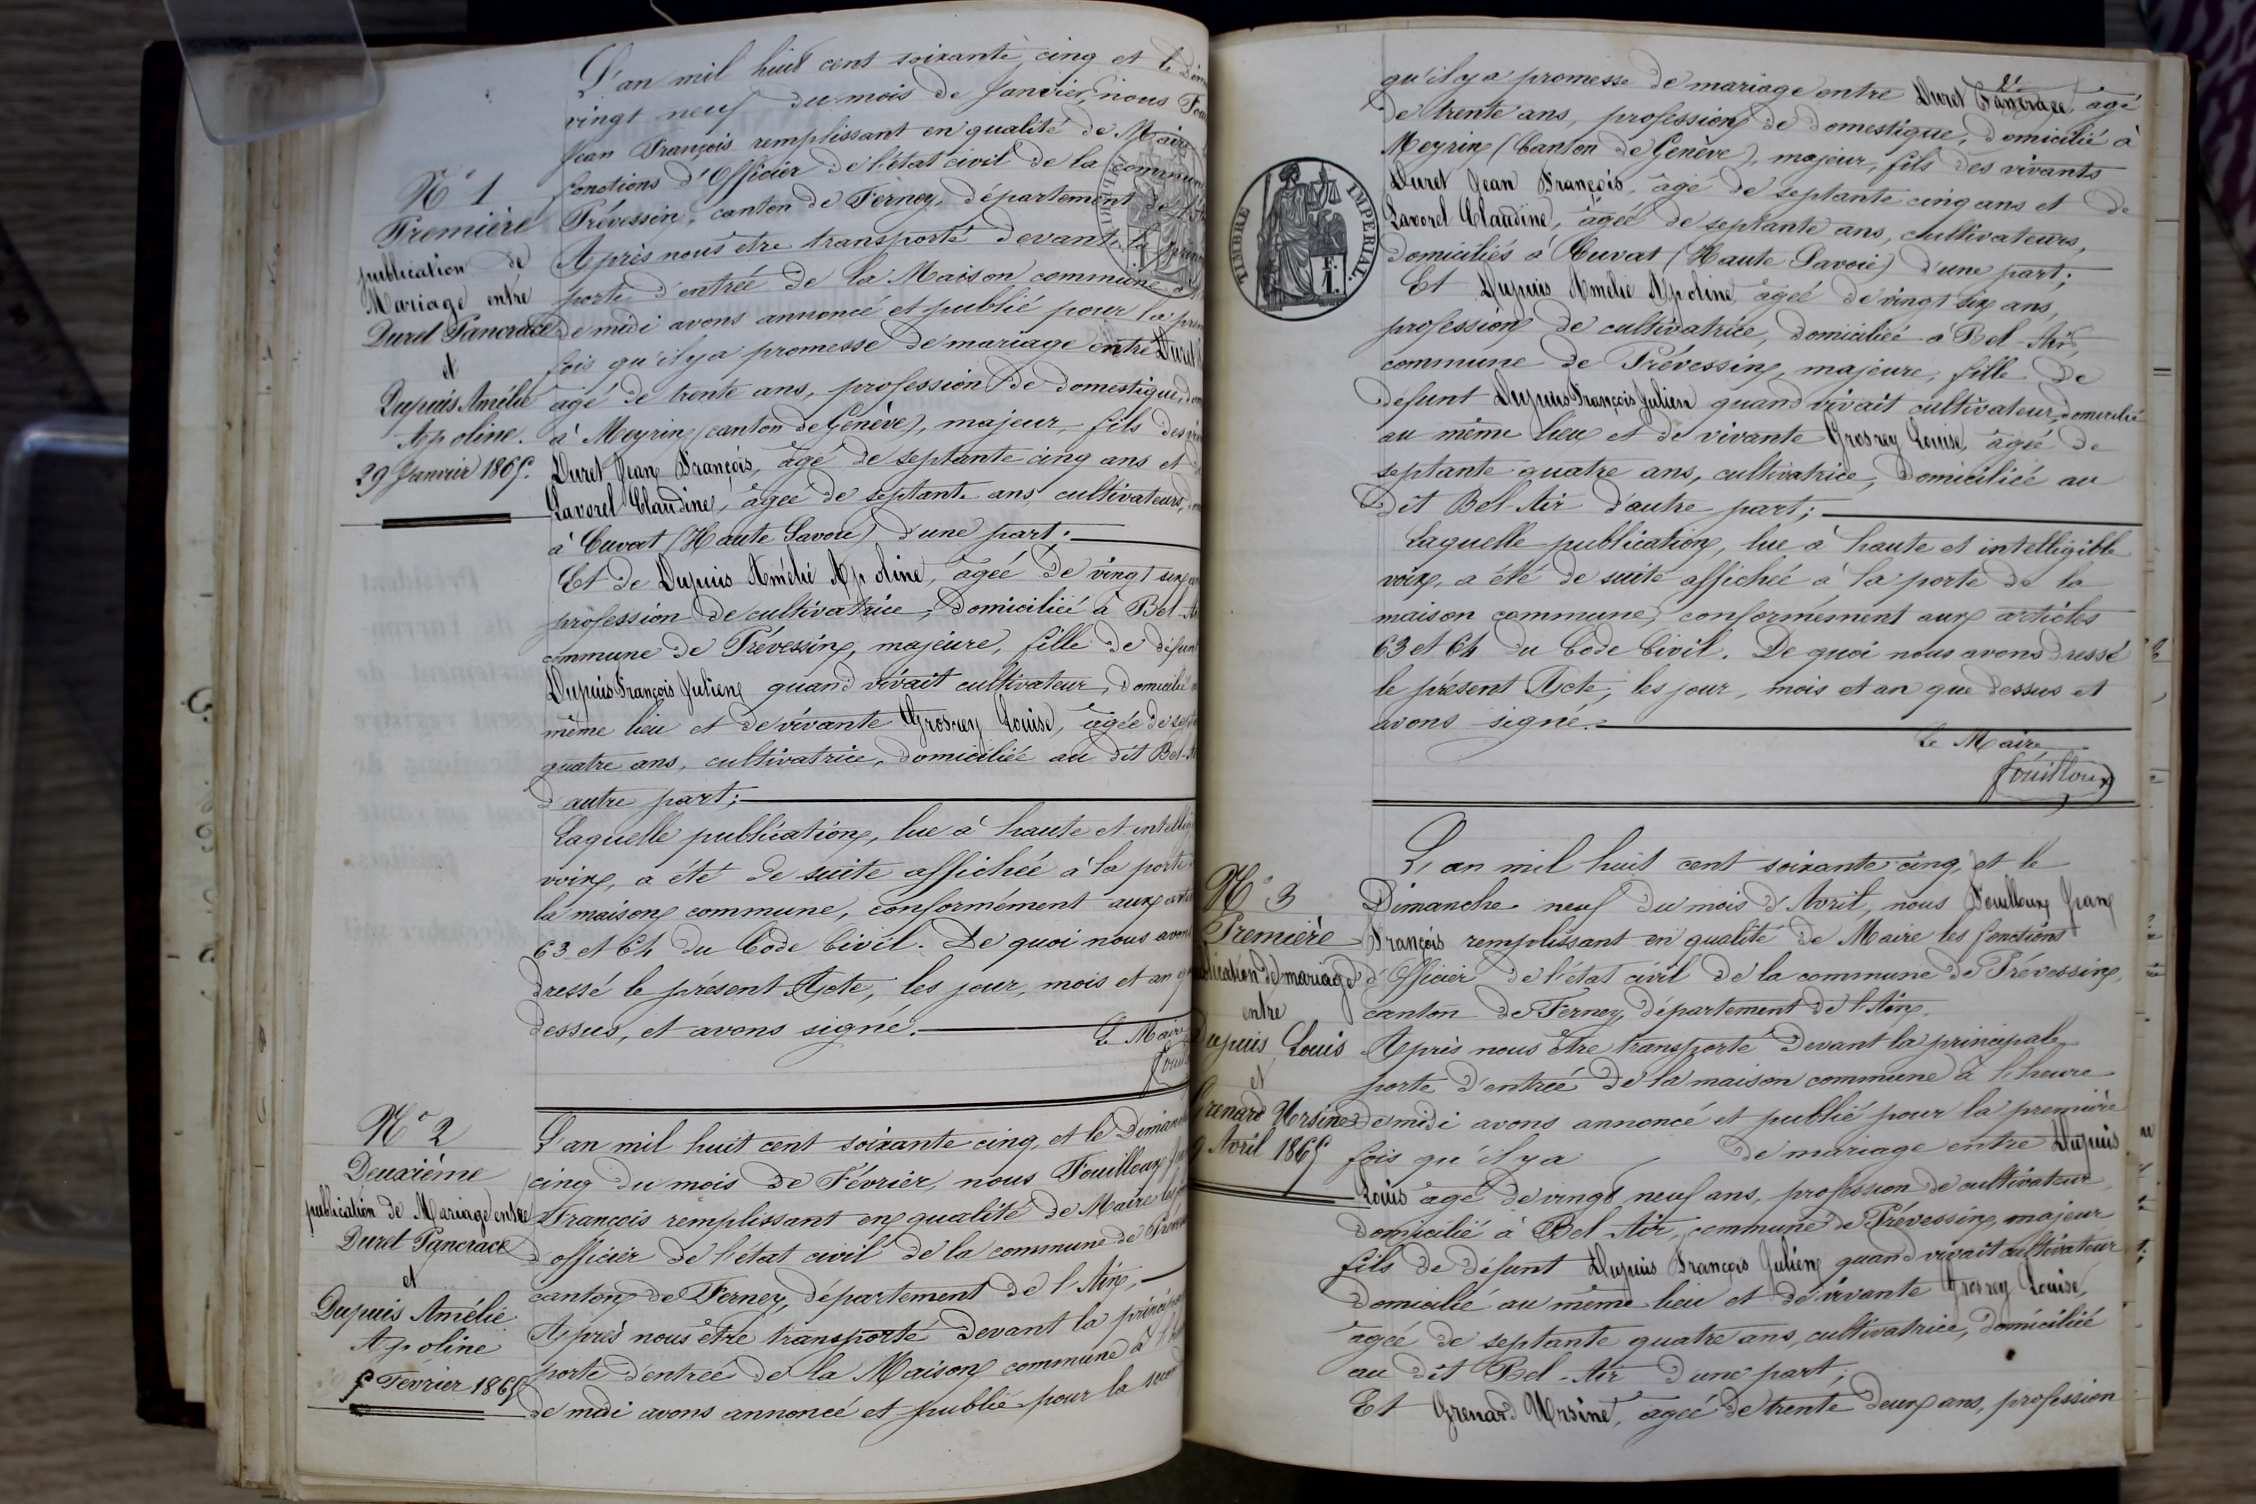 L'an mil huit cent soixante cinq et le
vingt neuf du mois de Janvier, nous
Jean François remplissant en qualité de Maire
fonctions d'Officier de l'état civil de la commun
Prévessin, canton de Ferney, département de l'
Après nous être transporté devant la
porte d'entrée de la Maison commune
de midi avons annoncé et publié pour la prem
fois qu'il y a promesse de mariage entre Duret
âgé de trente ans, profession de domestique,
à Meyrin (canton de Genève), majeur, fils des
Duret Jean François, âgé de septante cinq ans et
Lavorel Claudine, âgée de septante ans, cultivateurs,
à Cuvat (Haute Savoie) d'une part;
Et de Dupuis Amélie Apoline, âgée de vingt six
profession de cultivatrice, domiciliée à Bel-
commune de Prévessin, majeure, fille de défunt
Dupuis François Julien quand vivait cultivateur, domicilié
même lieu et de vivante Grosrey Louise, âgée de
quatre ans, cultivatrice, domiciliée au dit Bel-
d'autre part;
Laquelle publication, lue à haute et intellig
voix, a été de suite affichée à la porte
la maison commune, conformément aux
63 et 64 du Code Civil. De quoi nous avons
dressé le présent Acte, les jour, mois et an
dessus, et avons signé.
Le Maire
N° 1
Première
publication de
Mariage entre
Duret Pancrace
et
Dupuis Amélie
Apoline.
29 Janvier 1865.
N° 2
Deuxième
publication de Mariage entre
Duret Pancrace
et
Dupuis Amélie
Apoline
5 Février 1865
L'an mil huit cent soixante cinq, et le Diman
cinq du mois de Février, nous Fouilloux
François remplissant en qualité de Maire les
d'officier de l'état civil de la commune de
canton de Ferney, département de l'Ain,
Après nous être transporté devant la princip
porte d'entrée de la Maison commune à
de midi avons annoncé et publié pour la
qu'il y a promesse de mariage entre Duret Pancrace âgé
de trente ans, profession de domestique, domicilié à
Meyrin (Canton de Genève), majeur, fils des vivants
Duret Jean François, âgé de septante cinq ans et de
Lavorel Claudine, âgée de septante ans, cultivateurs,
domiciliés à Cuvat (Haute Savoie) d'une part;
Et Dupuis Amélie Apoline âgée de vingt six ans,
profession de cultivatrice, domiciliée à Bel-Air,
commune de Prévessin, majeure, fille de
défunt Dupuis François Julien quand vivait cultivateur, domicilié
au même lieu et de vivante Grosrey Louise, âgée de
septante quatre ans, cultivatrice, domiciliée au
dit Bel Air d'autre part;
Laquelle publication, lue à haute et intelligible
voix, a été de suite affichée à la porte de la
maison commune, conformément aux articles
63 et 64 du Code Civil. De quoi nous avons dressé
le présent Acte, les jour, mois et an que dessus et
avons signé.
Le Maire
Fouilloux
TIMBRE IMPÉRIAL
N° 3
Première
publication de mariage
entre
Dupuis Louis
et
Grenard Ursine
9 Avril 1865
L'an mil huit cent soixante cinq, et le
Dimanche neuf du mois d'Avril, nous Fouilloux Jean
François remplissant en qualité de Maire les fonctions
d'Officier de l'état civil de la commune de Prévessin,
canton de Ferney, département de l'Ain.
Après nous être transporté devant la principale
porte d'entrée de la maison commune à l'heure
de midi avons annoncé et publié pour la première
fois qu'il y a de mariage entre Dupuis
Louis âgé de vingt neuf ans, profession de cultivateur
domicilié à Bel Air, commune de Prévessin, majeur
fils de défunt Dupuis François Julien quand vivait cultivateur
domicilié au même lieu et de vivante Grosrey Louise,
âgée de septante quatre ans, cultivatrice, domiciliée
au dit Bel-Air d'une part;
Et Grenard Ursine, âgée de trente deux ans, profession